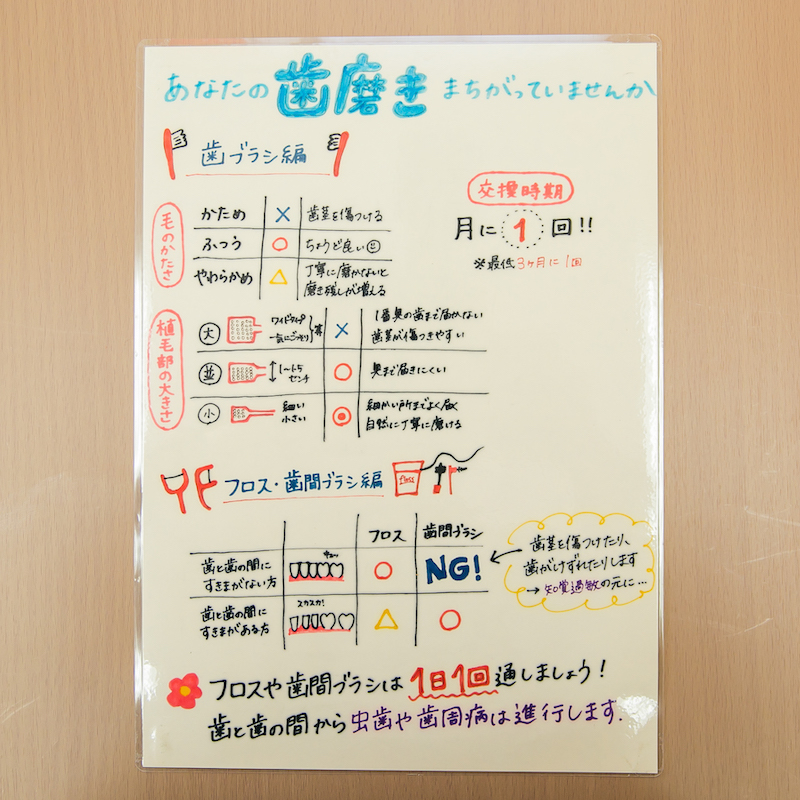 あなたの歯磨きまちがっていませんか
歯ブラシ編
交換時期
月に1回!!
※最低3ヶ月に1回
毛のかたさ
かため × 歯茎を傷つける
ふつう ○ ちょうど良い
やわらかめ △ 丁寧に磨かないと
磨き残しが増える
植毛部の大きさ
大 ワイドタイプ
一気にごっそり 等 × 1番奥の歯まで届かない
歯茎が傷つきやすい
並 1〜1.5
センチ ○ 奥まで届きにくい
小 細い
小さい ◎ 細かい所までよく届く
自然に丁寧に磨ける
フロス・歯間ブラシ編
floss
フロス 歯間ブラシ
歯と歯の間に
すきまがない方 ○ NG!
歯と歯の間に
すきまがある方 スカスカ! △ ○
歯茎を傷つけたり、
歯がけずれたりします
→ 知覚過敏の元に…
フロスや歯間ブラシは1日1回通しましょう!
歯と歯の間から虫歯や歯周病は進行します.